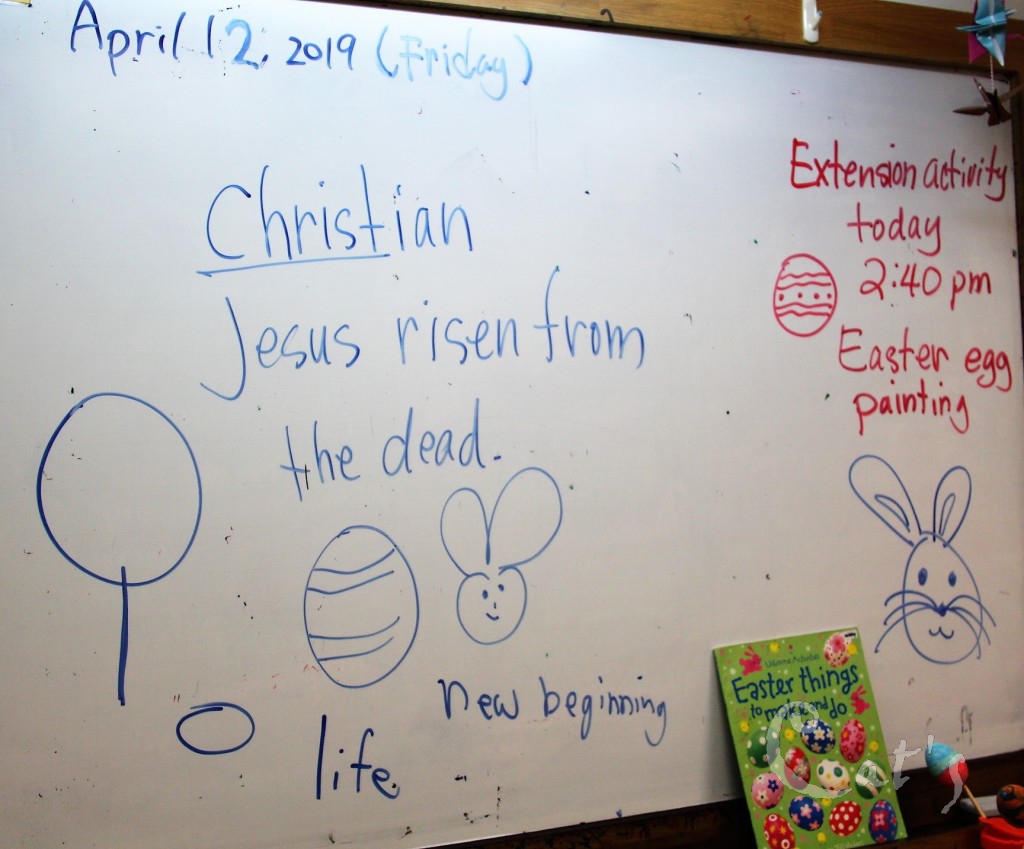 April 12, 2019 (Friday)
Christian
Jesus risen from
the dead.
new beginning
life.
Extension activity
today
2:40 pm
Easter egg
painting
Usborne Activities
Easter things
to make and do
Cat's